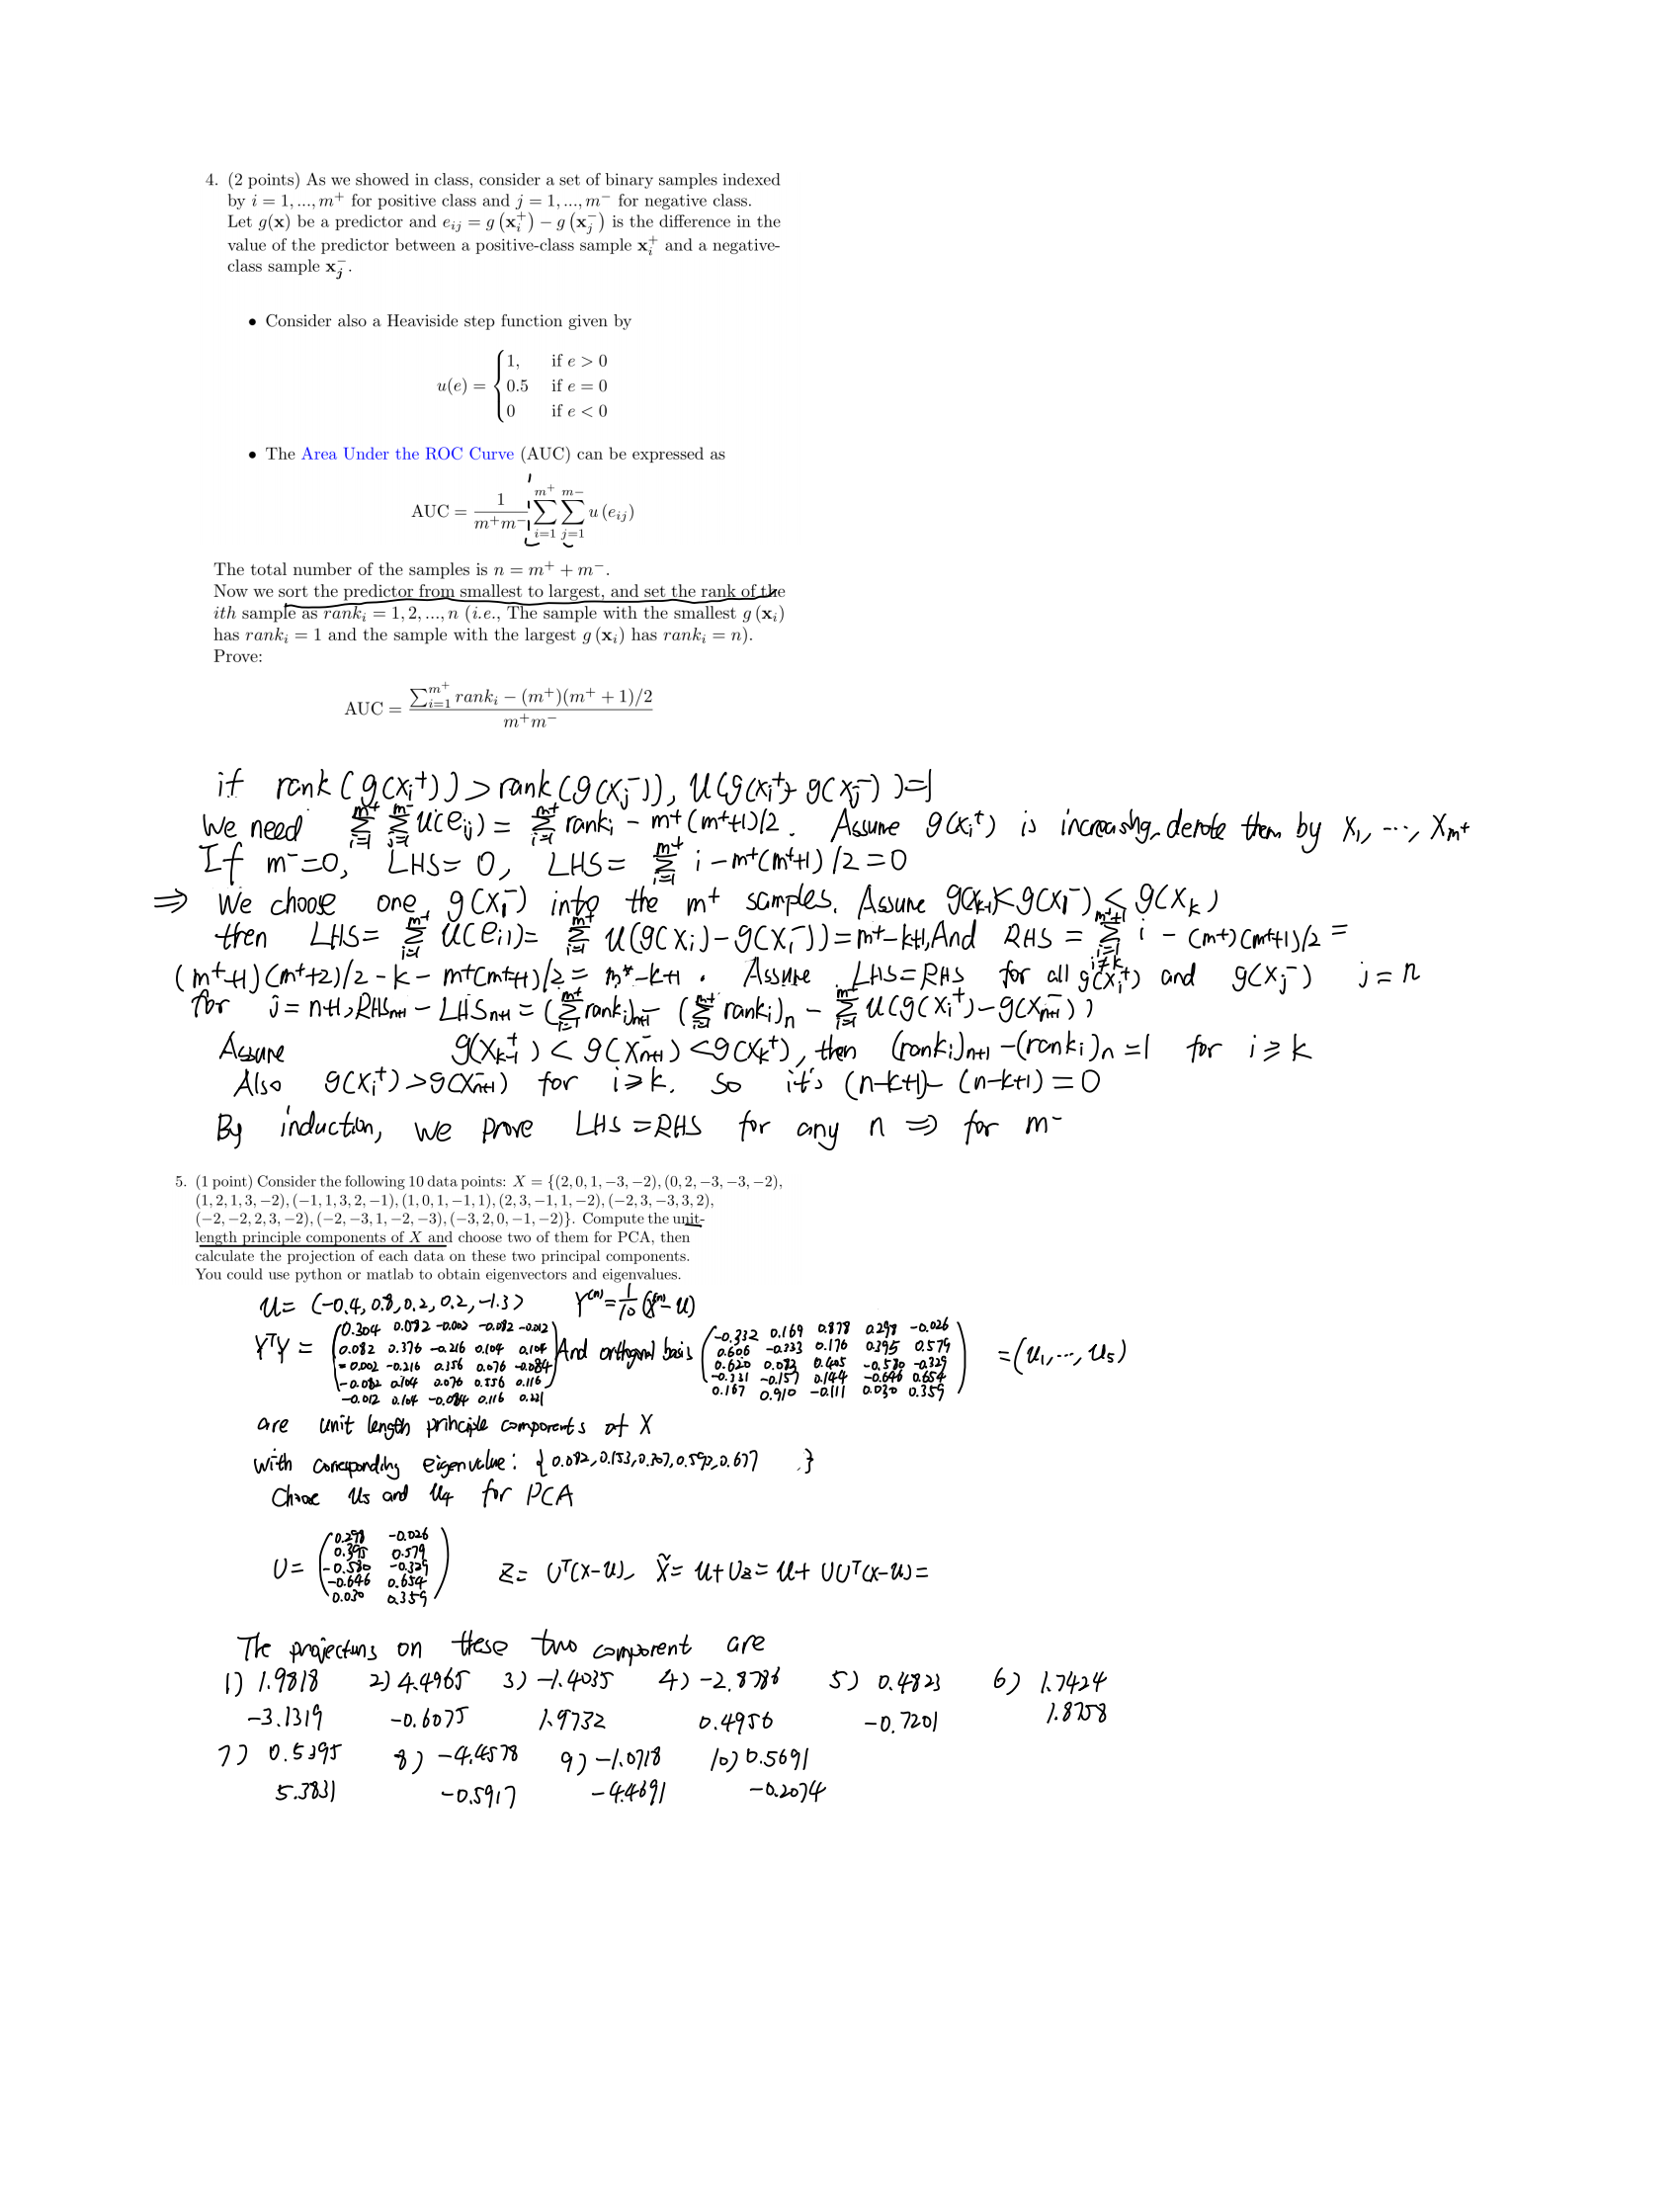 4. (2 points) As we showed in class, consider a set of binary samples indexed
by i = 1, ..., m⁺ for positive class and j = 1, ..., m⁻ for negative class.
Let g(x) be a predictor and e_ij = g(x_i⁺) − g(x_j⁻) is the difference in the
value of the predictor between a positive-class sample x_i⁺ and a negative-
class sample x_j⁻.
• Consider also a Heaviside step function given by
u(e) = { 1, if e > 0
0.5 if e = 0
0 if e < 0
• The Area Under the ROC Curve (AUC) can be expressed as
AUC = 1/(m⁺m⁻) ∑_{i=1}^{m⁺} ∑_{j=1}^{m−} u(e_ij)
The total number of the samples is n = m⁺ + m⁻.
Now we sort the predictor from smallest to largest, and set the rank of the
ith sample as rank_i = 1, 2, ..., n (i.e., The sample with the smallest g(x_i)
has rank_i = 1 and the sample with the largest g(x_i) has rank_i = n).
Prove:
AUC = (∑_{i=1}^{m⁺} rank_i − (m⁺)(m⁺ + 1)/2) / (m⁺m⁻)
if rank(g(x_i⁺)) > rank(g(x_j⁻)), u(g(x_i⁺)- g(x_j⁻))=1
We need ∑_{i=1}^{m⁺} ∑_{j=1}^{m⁻} u(e_ij) = ∑_{i=1}^{m⁺} rank_i − m⁺(m⁺+1)/2. Assume g(x_i⁺) is increasing, denote them by x₁, ..., x_m⁺
If m⁻=0, LHS= 0, LHS= ∑_{i=1}^{m⁺} i − m⁺(m⁺+1)/2 = 0
⇒ We choose one g(x₁⁻) into the m⁺ samples. Assume g(x_{k-1})< g(x₁⁻) ≤ g(x_k)
then LHS= ∑_{i=1}^{m⁺} u(e_i1)= ∑_{i=1}^{m⁺} u(g(x_i)−g(x₁⁻))=m⁺−k+1, And RHS = ∑_{i=1, i≠k}^{m⁺+1} i − (m⁺)(m⁺+1)/2 =
(m⁺+1)(m⁺+2)/2 − k − m⁺(m⁺+1)/2 = m⁺−k+1. Assume LHS=RHS for all g(x_i⁺) and g(x_j⁻) j = n
for j= n+1, RHS_{n+1} − LHS_{n+1} = (∑_{i=1}^{m⁺} rank_i)_{n+1} − (∑_{i=1}^{m⁺} rank_i)_n − ∑_{i=1}^{m⁺} u(g(x_i⁺)−g(x_{n+1}⁻))
Assume g(x_{k-1}⁺) < g(x_{n+1}⁻) < g(x_k⁺), then (rank_i)_{n+1} −(rank_i)_n = 1 for i ≥ k
Also g(x_i⁺) > g(x_{n+1}⁻) for i ≥ k. so it's (n−k+1)− (n−k+1) = 0
By induction, we prove LHS = RHS for any n ⇒ for m⁻
5. (1 point) Consider the following 10 data points: X = {(2, 0, 1, −3, −2), (0, 2, −3, −3, −2),
(1, 2, 1, 3, −2), (−1, 1, 3, 2, −1), (1, 0, 1, −1, 1), (2, 3, −1, 1, −2), (−2, 3, −3, 3, 2),
(−2, −2, 2, 3, −2), (−2, −3, 1, −2, −3), (−3, 2, 0, −1, −2)}. Compute the unit-
length principle components of X and choose two of them for PCA, then
calculate the projection of each data on these two principal components.
You could use python or matlab to obtain eigenvectors and eigenvalues.
u= (−0.4, 0.8, 0.2, 0.2, −1.3) Y⁽ⁿ⁾= 1/10 (x⁽ⁿ⁾− u)
0.304 0.082 -0.002 -0.082 -0.012 -0.332 0.169 0.878 0.298 -0.026
YᵀY = 0.082 0.376 -0.216 0.104 0.104 And orthogonal basis 0.606 -0.333 0.176 0.395 0.579 =(u₁, ..., u₅)
-0.002 -0.216 0.356 0.076 -0.084 0.620 0.082 0.405 -0.580 -0.329
-0.082 0.104 0.076 0.556 0.116 -0.331 -0.157 0.144 -0.646 0.654
-0.012 0.104 -0.084 0.116 0.221 0.167 0.910 -0.111 0.030 0.359
are unit length principle components of X
with corresponding eigenvalue: {0.082, 0.153, 0.307, 0.593, 0.677 }
Choose u₅ and u₄ for PCA
0.298 -0.026
0.395 0.579
U= -0.580 -0.329 Z= Uᵀ(x−u), x̃= u+Uz= u+ UUᵀ(x−u)=
-0.646 0.654
0.030 0.359
The projections on these two component are
1) 1.9818 2) 4.4965 3) −1.4035 4) −2.8786 5) 0.4823 6) 1.7424
−3.1319 −0.6075 1.9732 0.4956 −0.7201 1.8758
7) 0.5395 8) −4.4578 9) −1.0718 10) 0.5691
5.3831 −0.5917 −4.4691 −0.2074